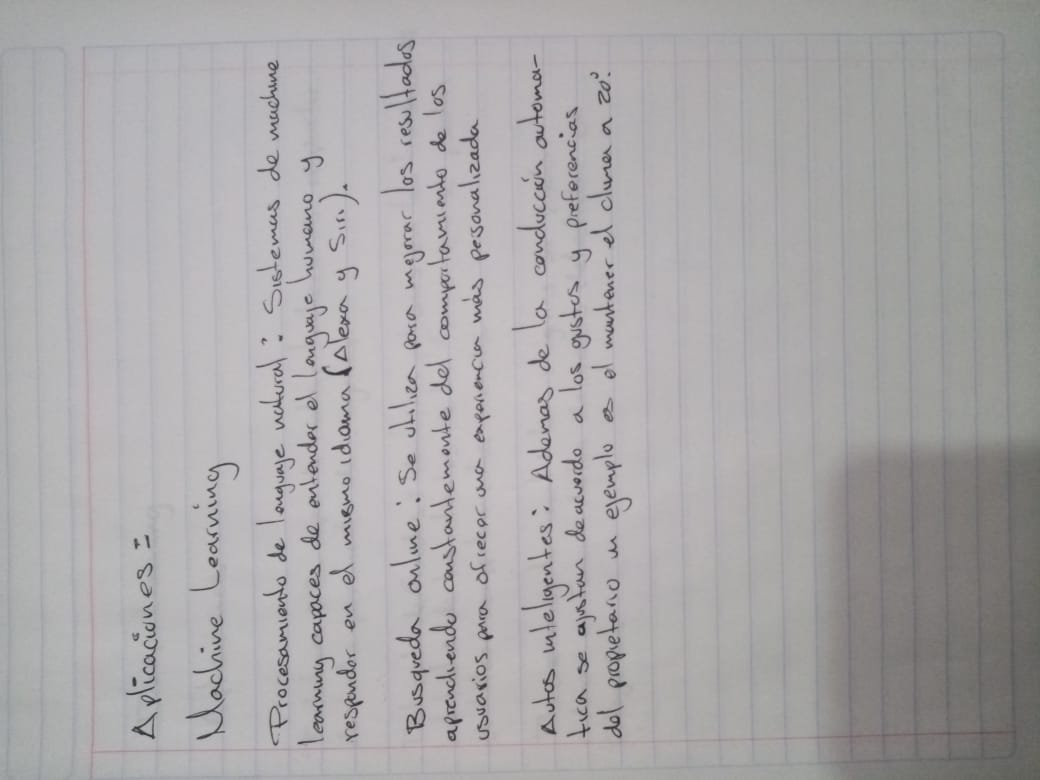 Aplicaciones =
Machine Learning
Procesamiento de lenguaje natural: Sistemas de machine
learning capaces de entender el lenguaje humano y
responder en el mismo idioma (Alexa y Siri).
Busqueda online: Se utiliza para mejorar los resultados
aprendiendo constantemente del comportamiento de los
usuarios para ofrecer una experiencia más pesonalizada
Autos inteligentes: Ademas de la conducción automa-
tica se ajustan deacuerdo a los gustos y preferencias
del propietario un ejemplo es el mantener el clima a 20°.